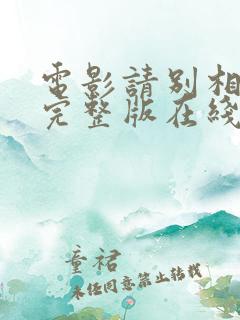 電影請別相
完整版在綫
童裙
未经同意禁止转载